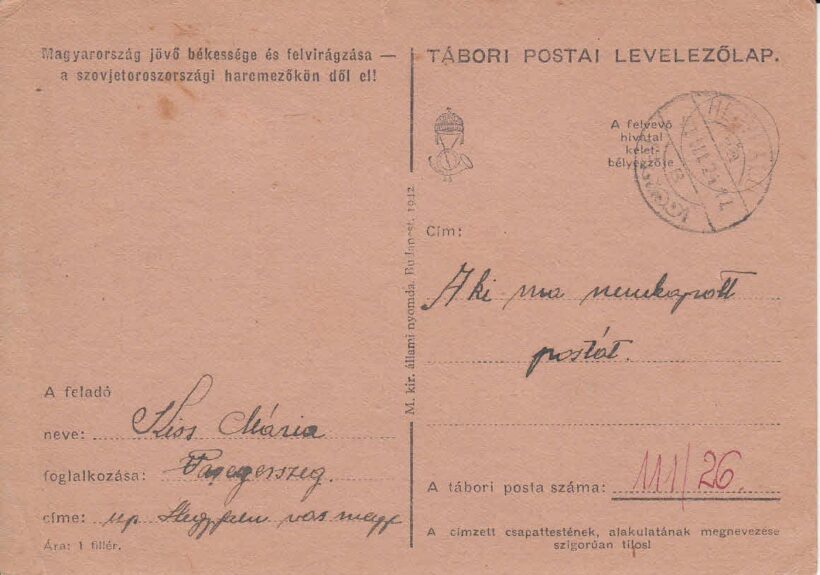 Magyarország jövő békessége és felvirágzása —
a szovjetoroszországi harcmezőkön dől el!
TÁBORI POSTAI LEVELEZŐLAP.
A felvevő
hivatal
kelet-
bélyegzője
M. kir. állami nyomda. Budapest. 1942
Cím:
Aki ma nemkapott
postát.
A feladó
neve: Kiss Mária
foglalkozása:
címe: up vas megy
Ára: 1 fillér.
A tábori posta száma: 111/26.
A címzett csapattestének, alakulatának megnevezése
szigorúan tilos!